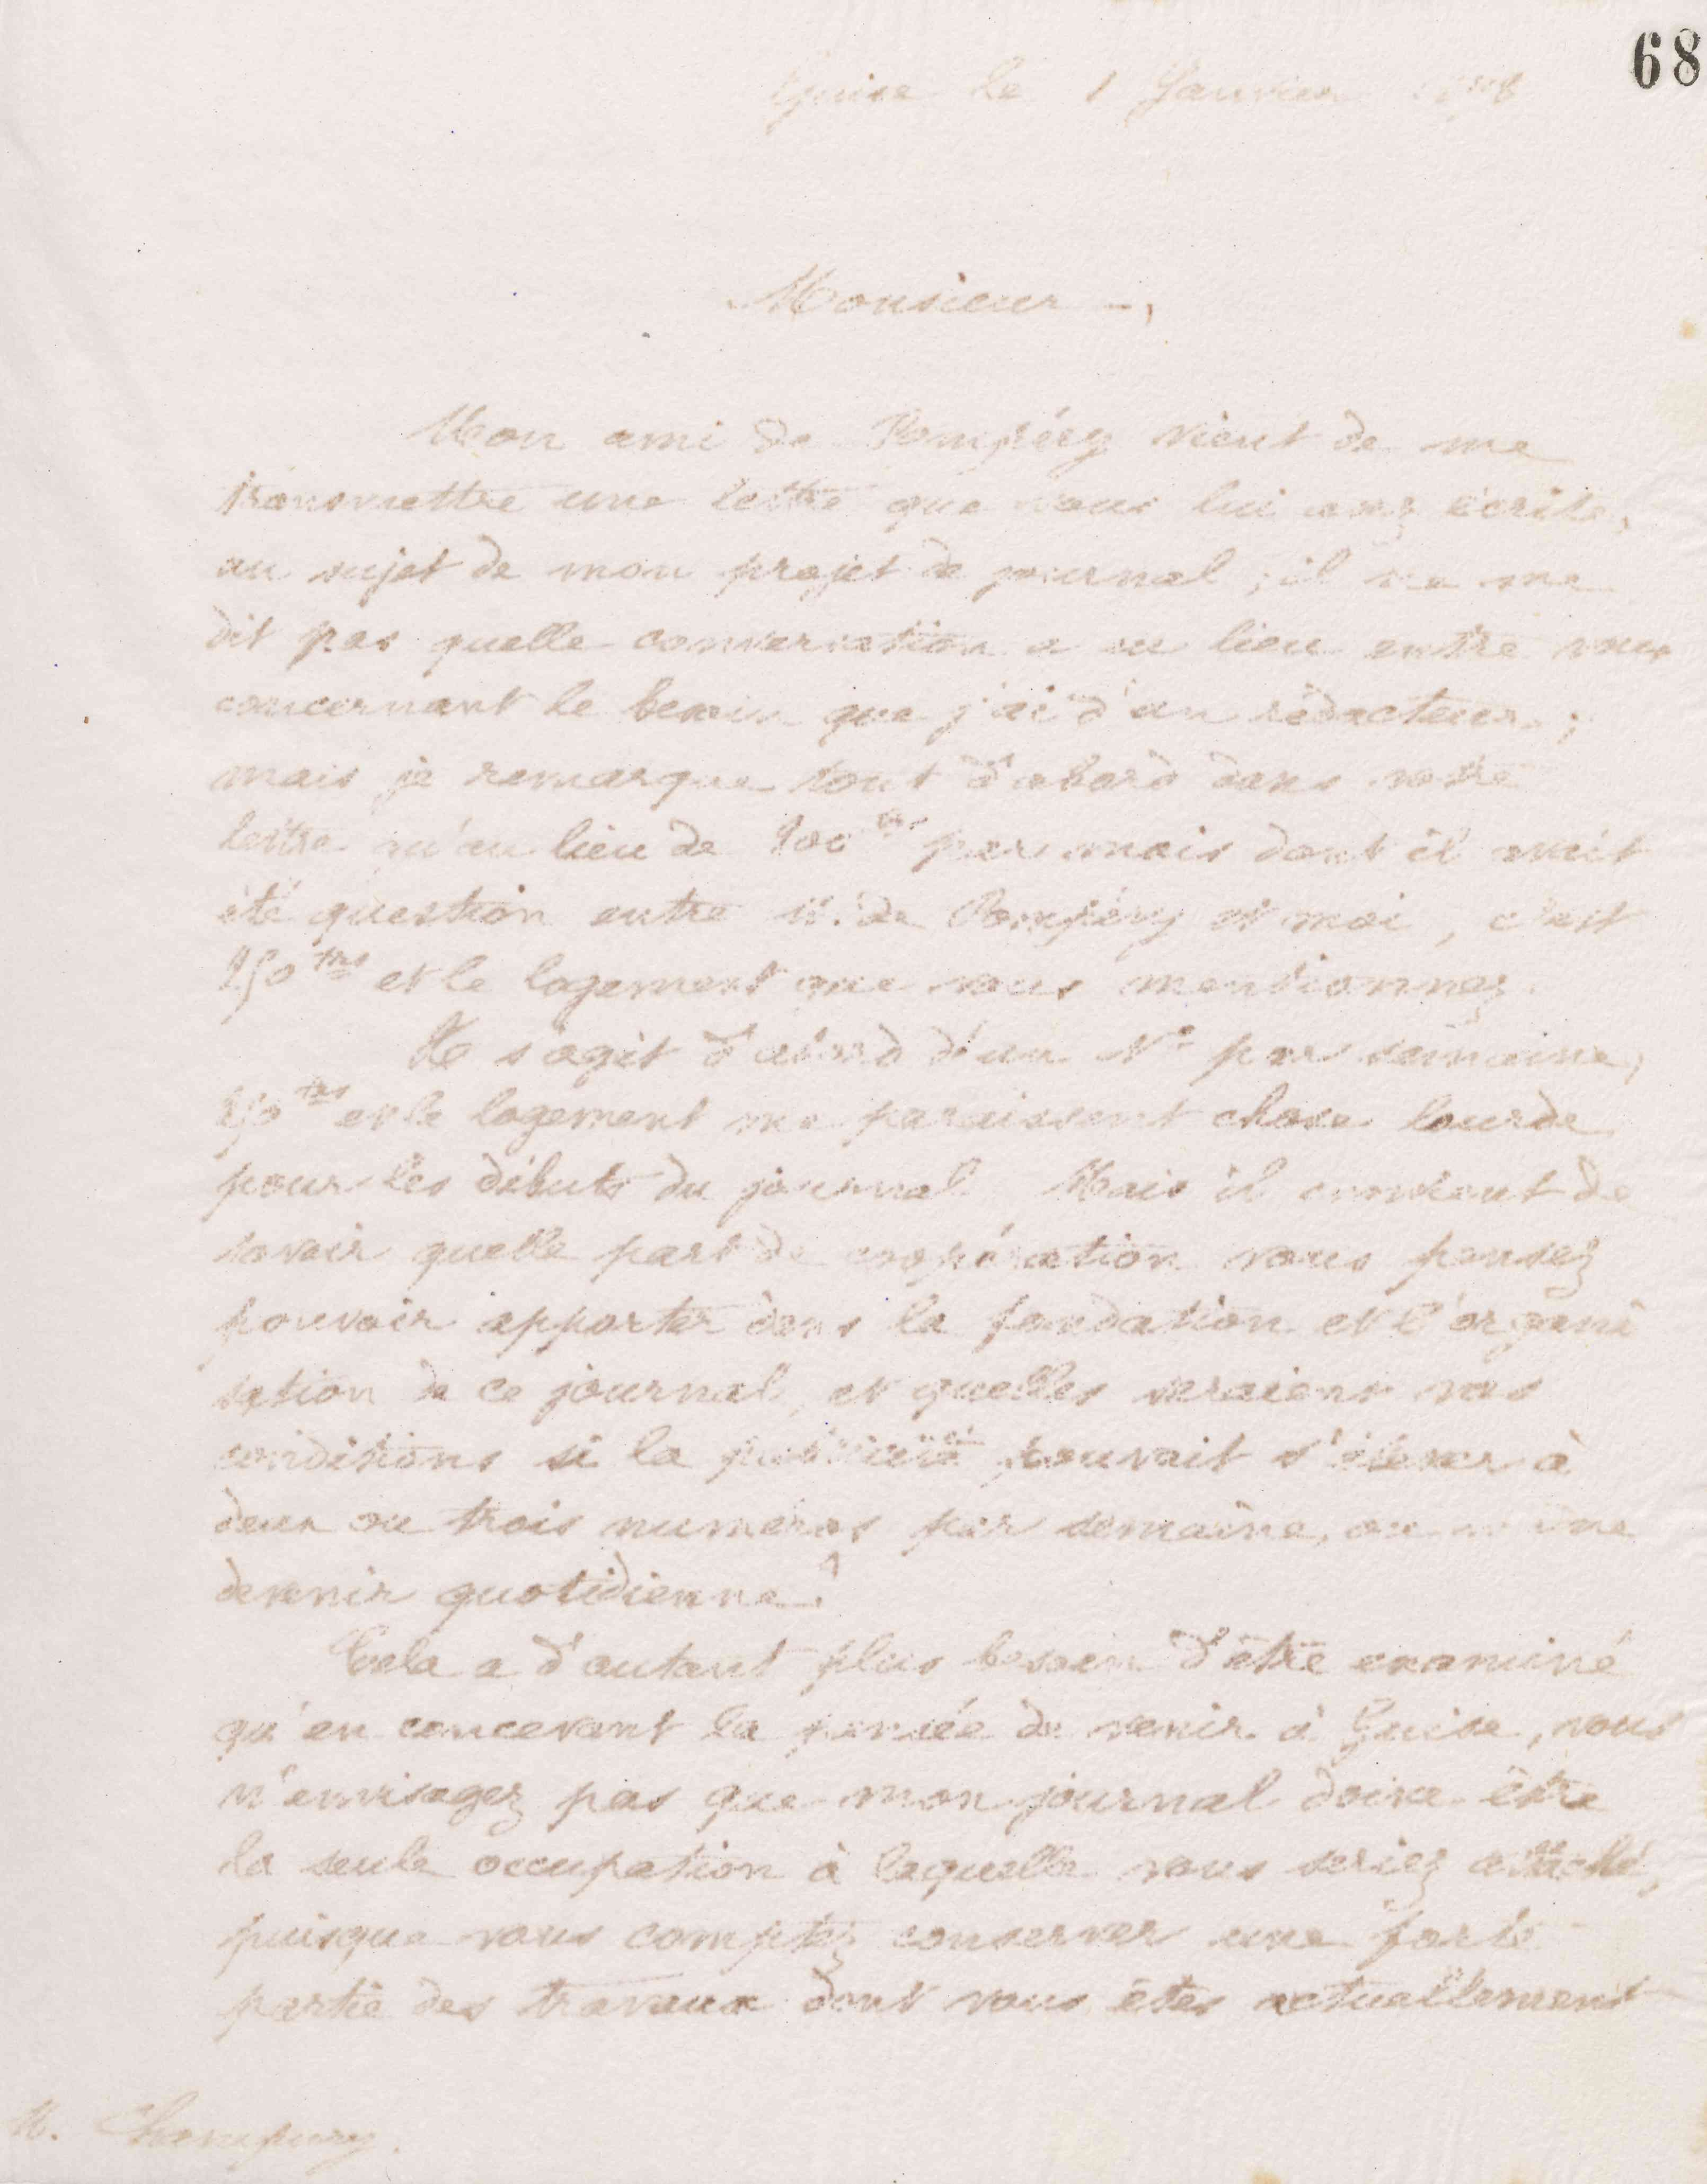 68
Guise le 1 Janvier
Monsieur -,
Mon ami de Pompéry vient de me
transmettre une lettre que vous lui avez écrite,
au sujet de mon projet de journal ; il ne me
dit pas quelle conversation a eu lieu entre vous
concernant le besoin que j'ai d'un rédacteur ;
mais je remarque tout d'abord dans votre
lettre qu'au lieu de par mois dont il avait
été question entre M. de Pompéry et moi, c'est
250 frs et le logement que vous mentionnez.
Il s'agit d'abord d'un N° par semaine,
250 frs et le logement me paraissent chose lourde
pour les débuts du journal. Mais il convient de
savoir quelle part de coopération vous pensez
pouvoir apporter dans la fondation et l'organi
sation de ce journal, et quelles seraient vos
conditions si la publicité pouvait s'élever à
deux ou trois numéros par semaine, ou même
devenir quotidienne ?
Cela a d'autant plus besoin d'être examiné
qu'en concevant la pensée de venir à Guise, vous
n'envisagez pas que mon journal doive être
la seule occupation à laquelle vous seriez attaché,
puisque vous comptez conserver une forte
partie des travaux dont vous êtes actuellement
M. Champury.